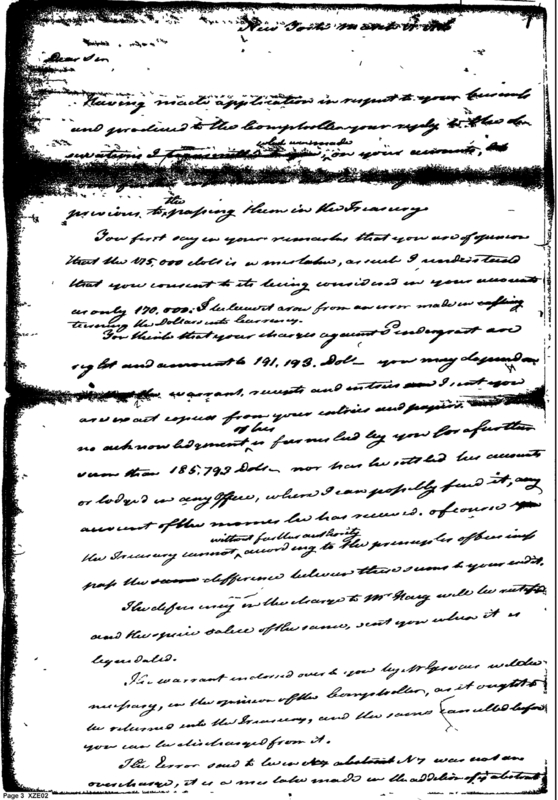 New York March
Dear Sir
Having made application in respect to your business
and produced to the Comptroller your reply to the ob
servations I transmitted to you, what was made on your accounts,
previous to the passing them in the Treasury
You first say in your remarks that you are of opinion
that the 175,000 dolls is a mistake, as such I understood
that you consent to its being considered in your accounts
as only 170.000: I believe it arose from an error made in casting
turning the Dollars into Currency.
You think that your charges against Pendergrast are
right and amount to 191.193. Doll you may depend on
the warrant, receipts and entries I sent you
are exact copies from your entries and papers,
no acknowledgment of his is furnished by you for a further
sum than 185.793 Dolls nor has he settled his accounts
or lodged in any Office, where I can possibly find it, any
account of the monies he has received. of course
the Treasury cannot, without further authority according to the principles of business
pass the same difference between these sums to your credit.
The deficiency in the charge to Mr Hary will be
and the specie value of the same, sent you when it is
liquidated.
The warrant endorsed over to you by Mr will be
necessary, in the opinion of the Comptroller, as it ought to
be returned into the Treasury, and the same cancelled before
you can be discharged from it.
The Error said to be in abstract No 7 was not an
overcharge, it is a mistake made in the addition of abstract
Page 3 XZE02